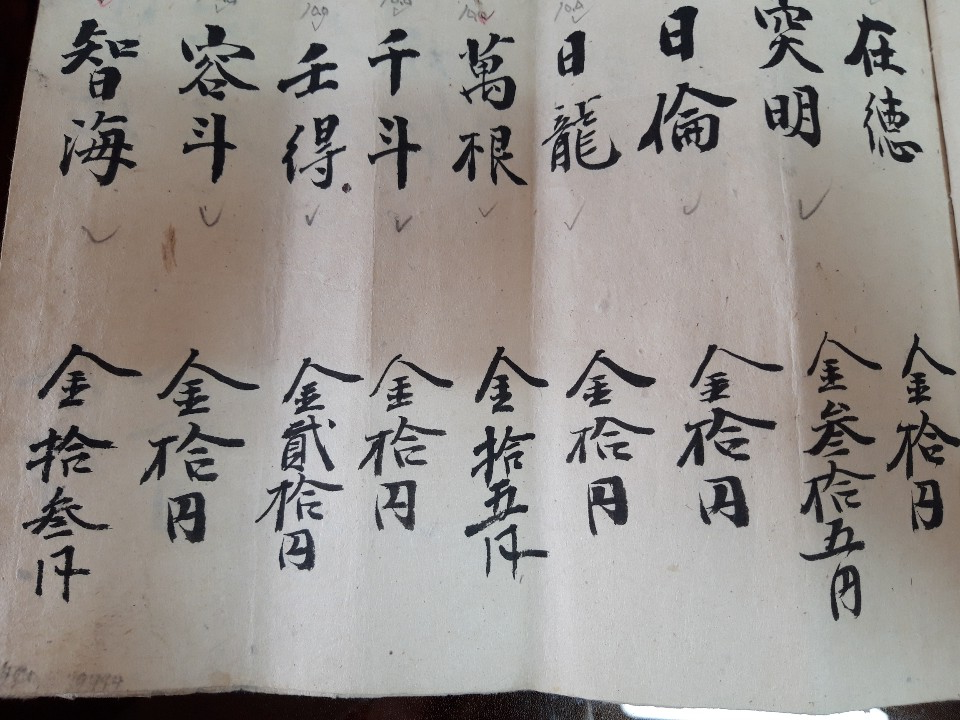 在徳 金拾円
突明 金参拾五円
日倫 金拾円
日龍 金拾円
萬根 金拾五円
千斗 金拾円
壬得 金貳拾円
容斗 金拾円
智海 金拾参円